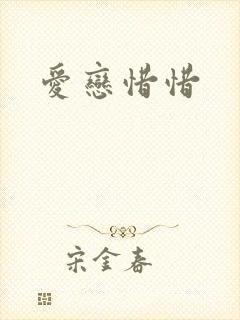 愛戀惜惜
宋金春